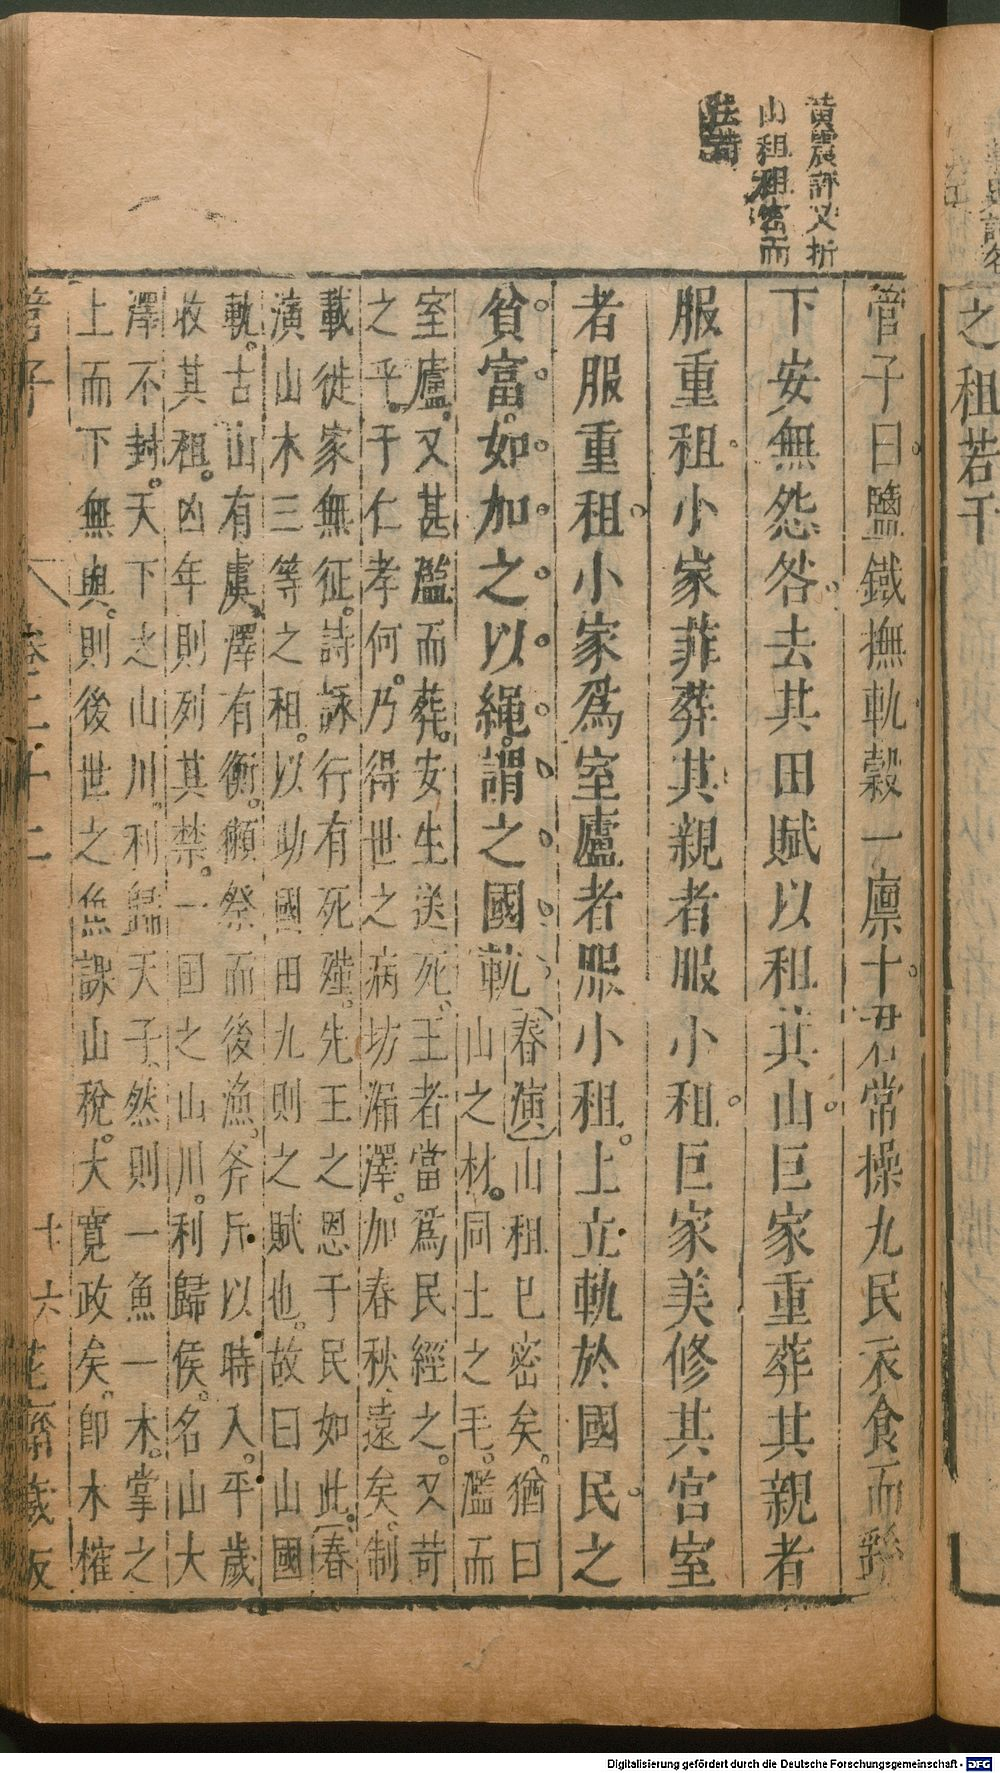 之租若干
黃震評又折
山租租密而
管子曰鹽鐵撫軌穀一廩十君常操九民衣食而繇
下安無怨咎去其田賦以租其山巨家重葬其親者
服重租小家菲葬其親者服小租巨家美修其宮室
者服重租小家為室廬者服小租上立軌於國民之
貧富如加之以繩謂之國軌
春演山租已密矣猶曰
山之材同土之毛濫而
室廬又甚濫而葬安生送死王者當為民經之又苛
之乎于仁孝何乃得世之病坊漏澤加春秋遠矣制
載徙家無征詩詠行有死殣先王之恩于民如此春
演山木三等之租以助國田九則之賦也故曰山國
軌古山有虞澤有衡獺祭而後漁斧斤以時入平歲
收其租凶年則列其禁一国之山川利歸侯名山大
澤不封天下之山川利歸天子然則一魚一木掌之
上而下無與則後世之魚課山稅大寬政矣卽木榷
管子
卷二十二
十六
花齋藏板
Digitalisierung gefördert durch die Deutsche Forschungsgemeinschaft - DFG